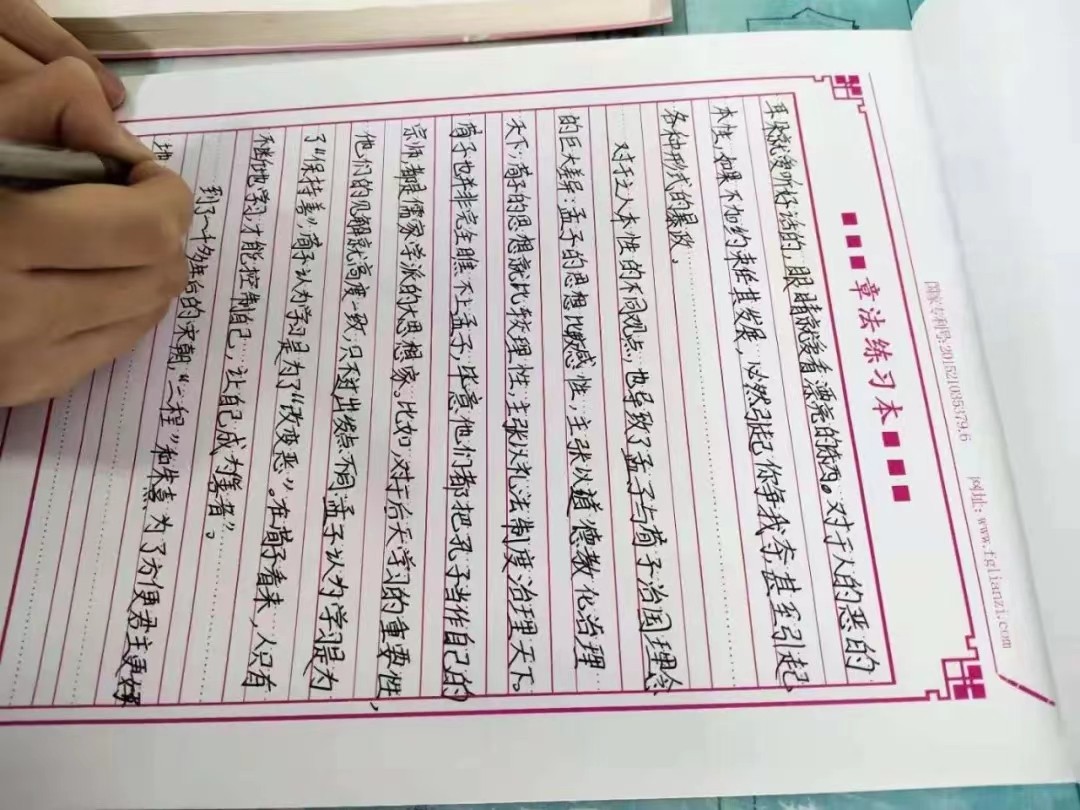 国家专利号:201521035379.6 网址:www.fglianzi.com
章法练习本
耳朵就爱听好话的,眼睛就爱看漂亮的东西。对于人的恶的
本性,如果不加约束任其发展,必然引起你争我夺,甚至引起
各种形式的暴政。
对于人本性的不同观点,也导致了孟子与荀子治国理念
的巨大差异:孟子的思想比较感性,主张以道德教化治理
天下;荀子的思想就比较理性,主张以礼法制度治理天下。
荀子也并非完全瞧不上孟子,毕竟他们都把孔子当作自己的
宗师,都是儒家学派的大思想家。比如,对于后天学习的重要性,
他们的见解就高度一致,只不过出发点不同,孟子认为学习是为
了“保持善”,荀子认为学习是为了“改变恶”。在荀子看来,人只有
不断地学习,才能控制自己,让自己成为“善者”。
到了一千多年后的宋朝,“二程”和朱熹为了方便君主更好
地